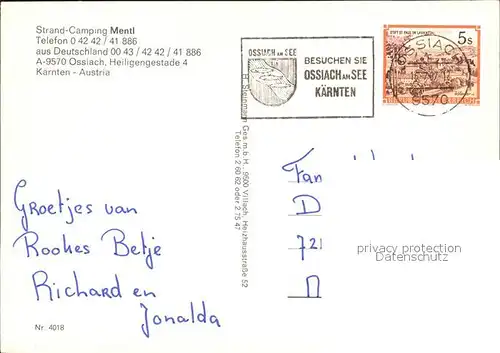 Strand-Camping Mentl
Telefon 0 42 42 / 41 886
aus Deutschland 00 43 / 42 42 / 41 886
A-9570 Ossiach, Heiligengestade 4
Kärnten - Austria
OSSIACH AM SEE
BESUCHEN SIE
OSSIACH AM SEE
KÄRNTEN
STIFT ST. PAUL IM LAVANTTAL
5 S
OSSIACH
9570
H. Steinmann Ges.m.b.H., 9500 Villach, Heizhausstraße 52
Telefon 2 60 62 oder 2 75 47
Groetjes van
Rookes Betje
Richard en
Jonalda
Fam
D
721
privacy protection
Datenschutz
Nr. 4018